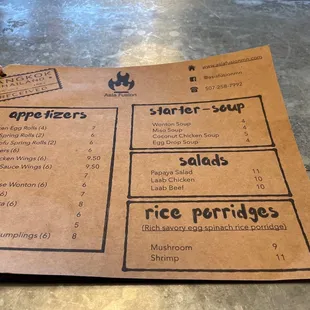 BANGKOK
THAILAND
RECEIVED
Asia Fusion
507-258-7992
appetizers
Egg Rolls (4) 7
Spring Rolls (2) 6
Tofu Spring Rolls (2) 6
(6) 6
Wings (6) 9.50
Sauce Wings (6) 9.50
Wonton (6) 7
(6) 8
6
5
Dumplings (6) 8
starter-soup
Wonton Soup 4
Miso Soup 4
Coconut Chicken Soup 5
Egg Drop Soup 4
salads
Papaya Salad 11
Laab Chicken 10
Laab Beef 10
rice porridges
(Rich savory egg spinach rice porridge)
Mushroom 9
Shrimp 11